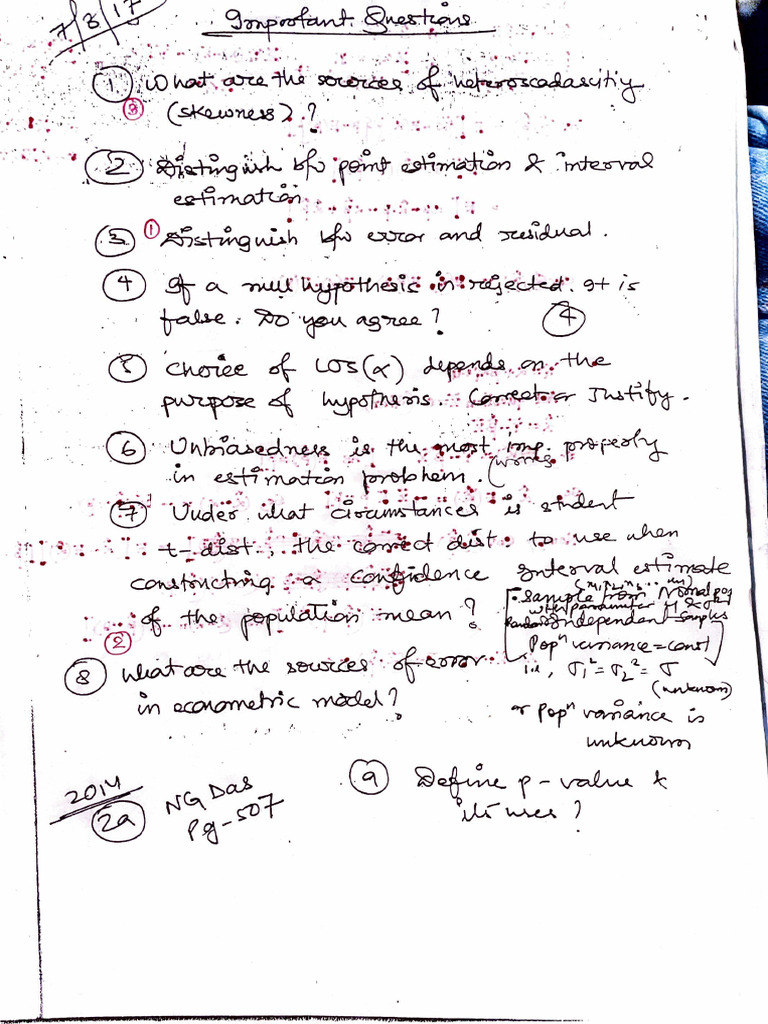 7/8/17
Important Questions
① What are the sources of heteroscadascitiy
③ (skewness).?
② Distinguish b/w point estimation & interval
estimation
③ ① Distinguish b/w error and residual.
④ If a null hypothesis in rejected. It is
false. Do you agree? ④
⑤ Choice of LOS(α) depends on the
purpose of hypothesis. Correct or Justify.
⑥ Unbiasedness is the most imp. property
in estimation problem.
⑦ Under what circumstances is student
t-dist., the correct dist. to use when
constructing a confidence Interval estimate
of the population mean?
sample from Normal pop
with parameter μ & σ²
Random & Independent samples
Popⁿ variance = const
i.e., σ₁² = σ₂² = σ
(unknown)
or Popⁿ variance is
unknown
②
⑧ What are the sources of error
in econometric model?
2014
2a NG Das
Pg-507
⑨ Define p-value &
its uses?